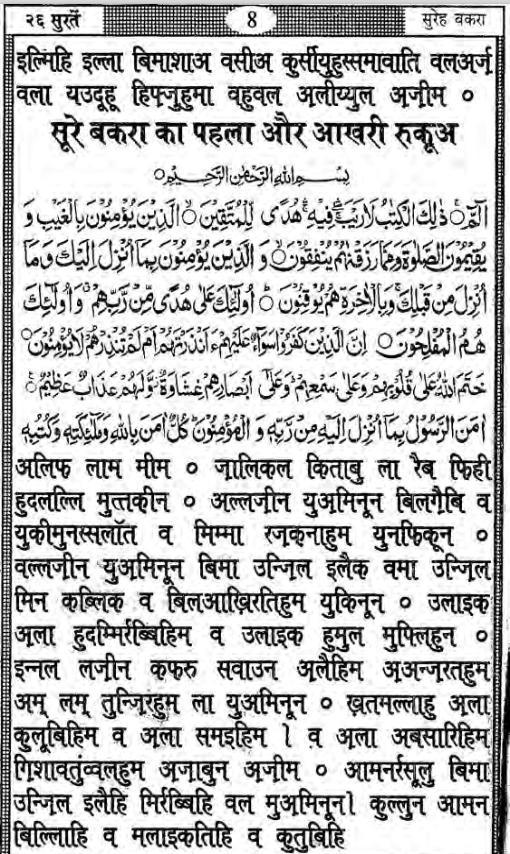 २६ सुरतें 8 सुरेह वकरा
इल्मिहि इल्ला बिमाशाअ वसीअ कुर्सीयुहुस्समावाति वलअर्ज़
वला यउदूहू हिफ्जुहुमा वहुवल अलीय्युल अज़ीम ०
सूरे बकरा का पहला और आखरी रुकूअ
بِسْمِ اللهِ الرَّحْمٰنِ الرَّحِيْمِ ○
الٓمّٓ ○ ذٰلِكَ الْكِتٰبُ لَا رَيْبَ فِيْهِ هُدًى لِّلْمُتَّقِيْنَ ○ الَّذِيْنَ يُؤْمِنُوْنَ بِالْغَيْبِ وَ
يُقِيْمُوْنَ الصَّلٰوةَ وَمِمَّا رَزَقْنٰهُمْ يُنْفِقُوْنَ ○ وَ الَّذِيْنَ يُؤْمِنُوْنَ بِمَا اُنْزِلَ اِلَيْكَ وَمَا
اُنْزِلَ مِنْ قَبْلِكَ وَبِالْاٰخِرَةِ هُمْ يُوْقِنُوْنَ ○ اُولٰٓئِكَ عَلٰى هُدًى مِّنْ رَّبِّهِمْ وَ اُولٰٓئِكَ
هُمُ الْمُفْلِحُوْنَ ○ اِنَّ الَّذِيْنَ كَفَرُوْا سَوَآءٌ عَلَيْهِمْ ءَاَنْذَرْتَهُمْ اَمْ لَمْ تُنْذِرْهُمْ لَا يُؤْمِنُوْنَ ○
خَتَمَ اللهُ عَلٰى قُلُوْبِهِمْ وَعَلٰى سَمْعِهِمْ وَعَلٰى اَبْصَارِهِمْ غِشَاوَةٌ وَّلَهُمْ عَذَابٌ عَظِيْمٌ ○
اٰمَنَ الرَّسُوْلُ بِمَا اُنْزِلَ اِلَيْهِ مِنْ رَّبِّهٖ وَ الْمُؤْمِنُوْنَ كُلٌّ اٰمَنَ بِاللهِ وَمَلٰٓئِكَتِهٖ وَكُتُبِهٖ
अलिफ लाम मीम ० ज़ालिकल किताबु ला रैब फिही
हुदलल्लि मुत्तकीन ० अल्लज़ीन युअमिनून बिलगैबि व
युकीमुनस्सलॉत व मिम्मा रज़कनाहुम युनफिकून ०
वल्लज़ीन युअमिनून बिमा उन्ज़िल इलैक वमा उन्ज़िल
मिन कब्लिक व बिलआख़िरतिहुम युकिनून ० उलाइक
अला हुदम्मिर्रब्बिहिम व उलाइक हुमुल मुफ्लिहुन ०
इन्नल लज़ीन कफरु सवाउन अलैहिम अअन्ज़रतहुम
अम् लम् तुन्ज़िरहुम ला युअमिनून ० ख़तमल्लाहु अला
कुलूबिहिम व अला समइहिम । व अला अबसारिहिम
गिशावतुंव्वलहुम अज़ाबुन अज़ीम ० आमनर्रसूलु बिमा
उन्ज़िल इलैहि मिर्रब्बिहि वल मुअमिनून। कुल्लुन आमन
बिल्लिाहि व मलाइकतिहि व कुतुबिहि